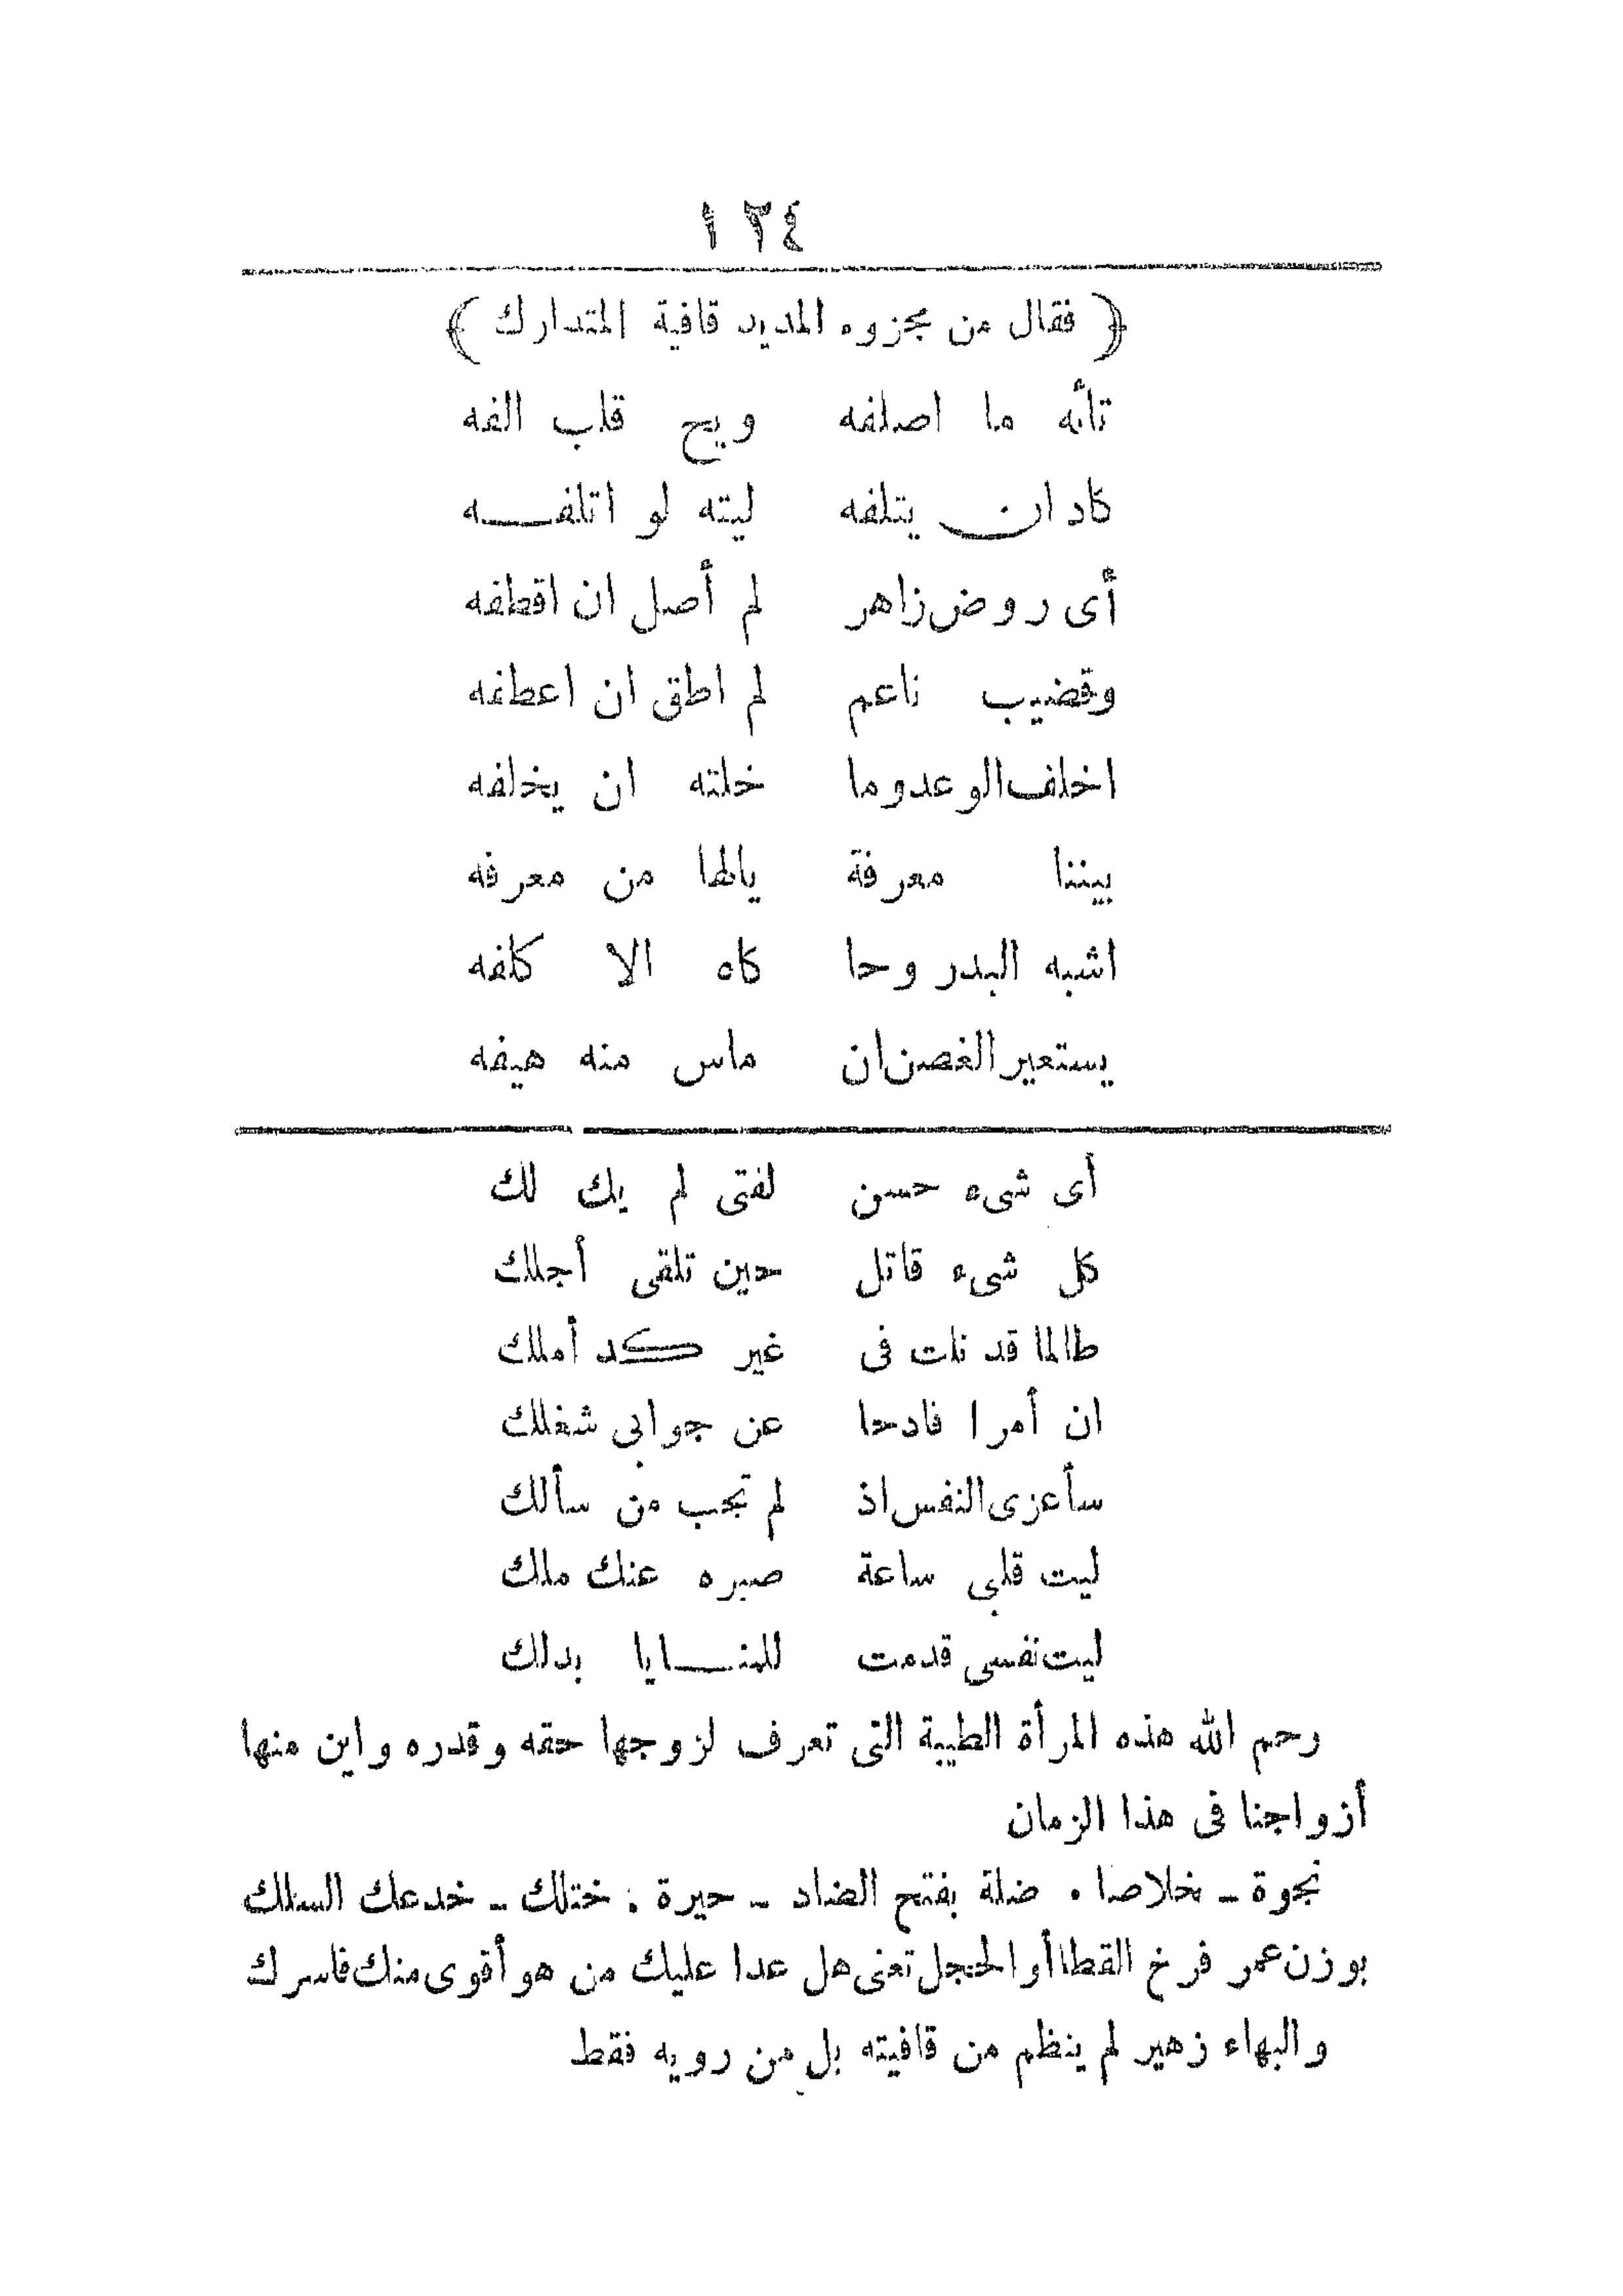 ١٣٤
﴿ فقال من مجزوه المديد قافية المتدارك ﴾
تأئه ما اصلفه ويح قلب الفه
كاد ان يتلفه ليته لو اتلفـــه
أى روض زاهر لم أصل ان اقطفه
وقضيب ناعم لم اطق ان اعطفه
اخلف الوعد وما خلته ان يخلفه
بيننا معرفة يالها من معرفه
اشبه البدر وحا كاه الا كلفه
يستعير الغصن ان ماس منه هيفه
أى شىء حسن لفتى لم يك لك
كل شىء قاتل حين تلقى أجلك
طالما قد نلت فى غير كد أملك
ان أمرا فادحا عن جوابى شغلك
سأعزى النفس اذ لم تجب من سألك
ليت قلبى ساعة صبره عنك ملك
ليت نفسى قدمت للمنـــايا بدلك
رحم الله هذه المرأة الطيبة التى تعرف لزوجها حقه وقدره واين منها
أزواجنا فى هذا الزمان
نجوة - خلاصا . ضلة بفتح الضاد - حيرة . ختلك - خدعك السلك
بوزن عمر فرخ القطا أو الحجل تعنى هل عدا عليك من هو أقوى منك فاسرك
والبهاء زهير لم ينظم من قافيته بل من رويه فقط